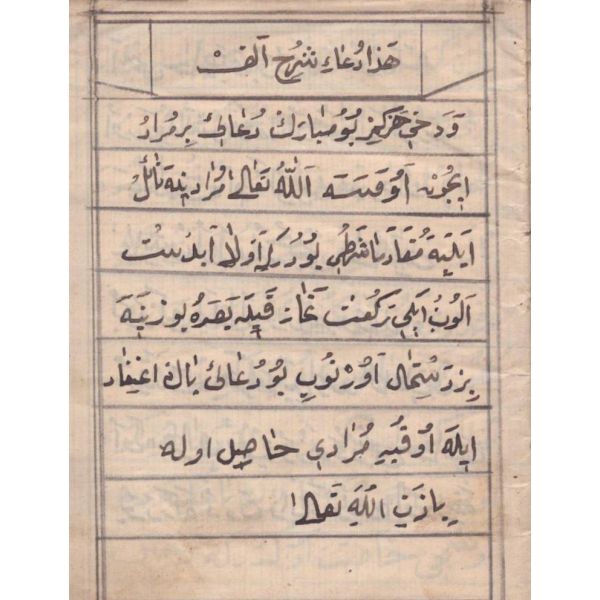 هَذَا دُعَاءِ شَرْحِ اَلِفْ
وَدَخِي هَرْ كِمْ بُو مُبَارَكْ دُعَايِ بِرْ مُرَادْ
اِيچُونْ اَوُقُسَه اَللّٰهُ تَعَالٰى مُرَادِينَه نَائِلْ
اَيْلَيَه شَرْطِي بُودُرْكِه اَوَّلَا آبْدَسْتْ
اَلُوبْ اِيكِي رَكْعَتْ نَمَازْ قِيلَه بَعْدَهُ يُوزِينَه
بِرْ دَسْتِمَالْ اَوُرْتُوبْ بُو دُعَايِ پَاكْ اِعْتِقَادْ
اِيلَه اُوقُيَه مُرَادِي حَاصِلْ اولَه
بِاِذْنِ اللّٰهِ تَعَالٰى